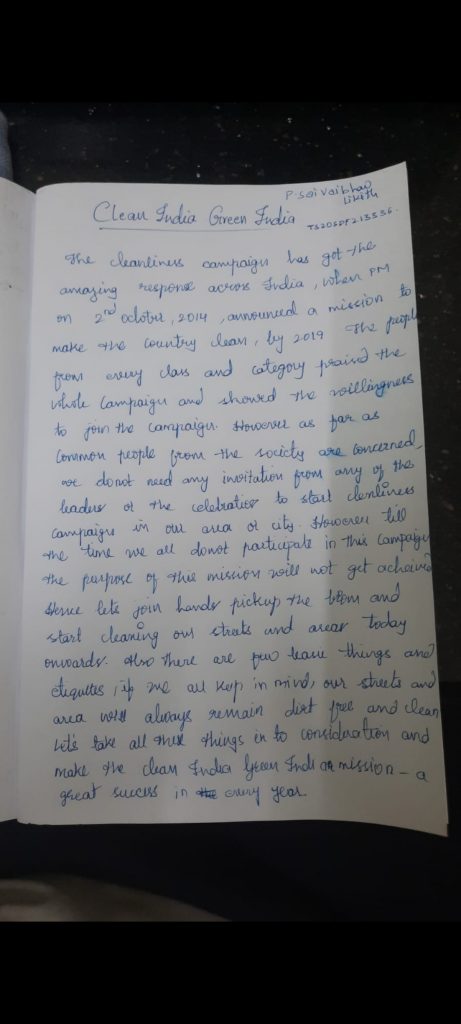 P. Sai Vaibhav
Likith
Clean India Green India
TS20SDF213536.
The cleanliness campaign has got the
amazing response across India, when PM
on 2nd october, 2014, announced a mission to
make the country clean, by 2019 The people
from every class and category praised the
whole campaign and showed the willingness
to join the campaign. However as far as
common people from the society are concerned,
we donot need any invitation from any of the
leaders or the celebraties to start clenliness
campaigns in our area or city. However till
the time we all donot participate in this campaign
the purpose of this mission will not get acheived
Hence lets join hands pickup the and
start cleaning our streets and areas today
onwards. Also there are few things and
etiquttes, if we all keep in mind, our streets and
area will always remain dirt free and clean
Let's take all these things in to consideration and
make the clean India Green Indian mission - a
great success in every year.